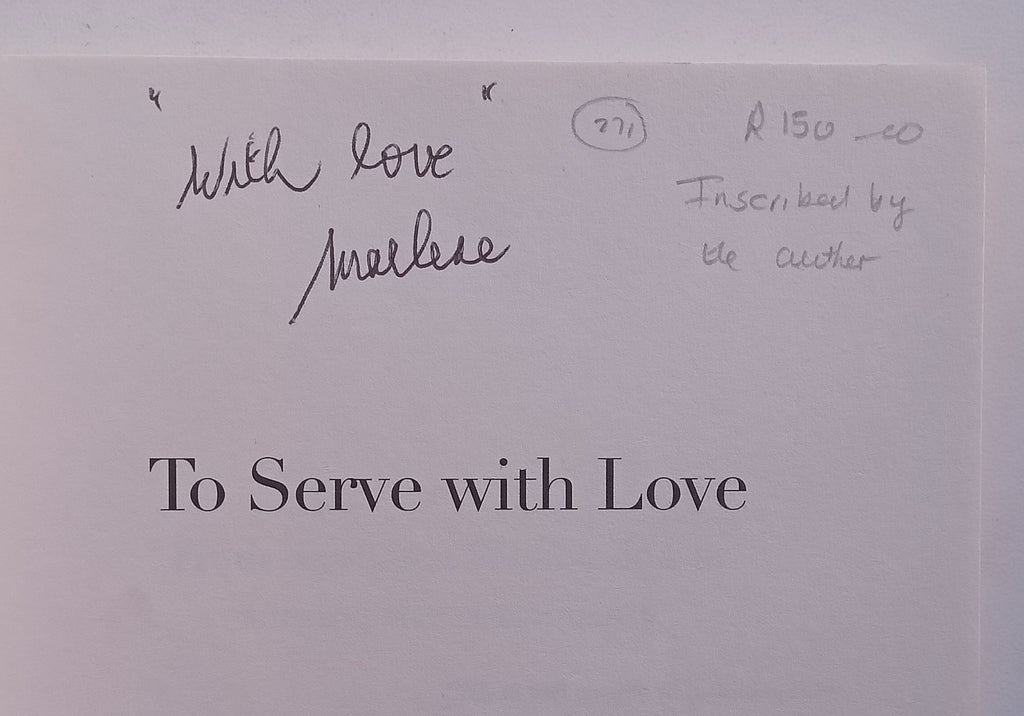 "With love"
Marlene
271
R 150-00
Inscribed by
the author
To Serve with Love